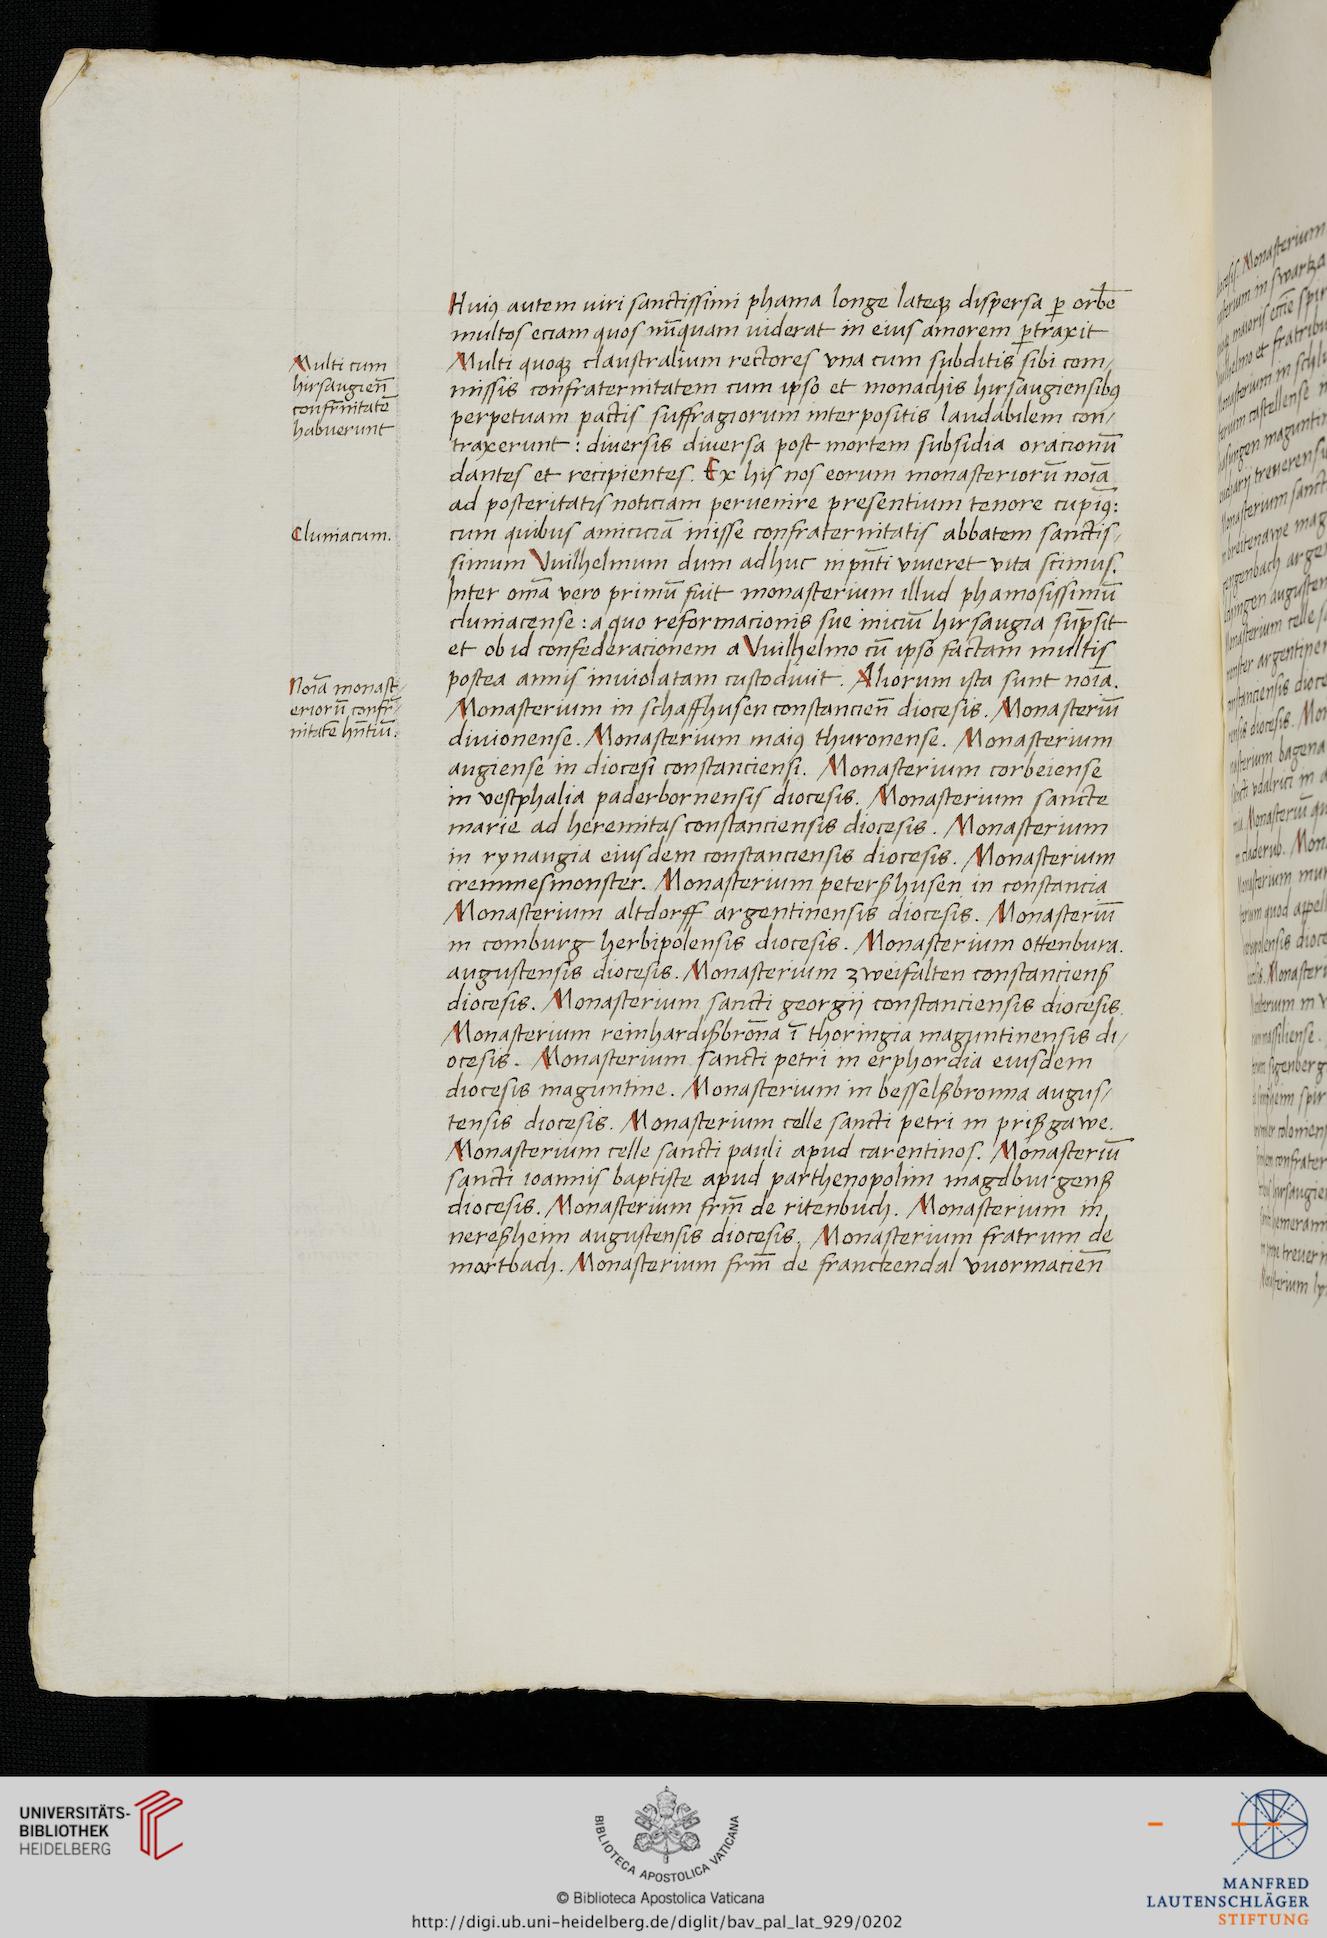 Huiꝰ autem uiri sanctissimi phama longe lateqꝫ dispersa ꝑ orbē
multos eciam quos nūquam uiderat in eius amorem ꝑtraxit
Multi quoqꝫ claustralium rectores vna cum subditis sibi com/
missis confraternitatem cum ipso et monachis hirsaugiensibꝰ
perpetuam pactis suffragiorum interpositis laudabilem con/
traxerunt : diversis diversa post mortem subsidia oracionū
dantes et recipientes. Ex his nos eorum monasteriorū noīa
ad posteritatis noticiam pervenire presentium tenore cupimꝰ:
cum quibus amiciciā inisse confraternitatis abbatem sanctis/
simum Vuilhelmum dum adhuc in pn̄ti viveret vita scimus.
Inter om̄a vero primū fuit monasterium illud phamosissimū
cluniacense : a quo reformacionis sue iniciū hirsaugia sūpsit
et ob id confederacionem a Vuilhelmo cū ipso factam multis
postea annis inviolatam custodivit. Aliorum ista sunt noīa.
Monasterium in schaffhusen constancien̄ diocesis. Monasteriū
divionense. Monasterium maiꝰ thuronense. Monasterium
augiense in diocesi constanciensi. Monasterium corbeiense
in vestphalia paderbornensis diocesis. Monasterium sancte
marie ad heremitas constanciensis diocesis. Monasterium
in rynaugia eiusdem constanciensis diocesis. Monasterium
cremmesmonster. Monasterium petersßhusen in constancia
Monasterium altdorff argentinensis diocesis. Monasteriū
in comburg herbipolensis diocesis. Monasterium ottenbura.
augustensis diocesis. Monasterium zweifalten constanciensß
diocesis. Monasterium sancti georgij constanciensis diocesis.
Monasterium reinhardißbroña ī thoringia maguntinensis di/
ocesis. Monasterium sancti petri in erphordia eiusdem
diocesis maguntine. Monasterium in besselßbronna augus/
tensis diocesis. Monasterium celle sancti petri in prißgawe.
Monasterium celle sancti pauli apud carentinos. Monasteriū
sancti ioannis baptiste apud parthenopolim magdburgenß
diocesis. Monasterium frm̄ de ritenbuch. Monasterium in
nereßheim augustensis diocesis. Monasterium fratrum de
mortbach. Monasterium frm̄ de franckendal vuormacien̄
Multi cum
hirsaugien̄
confrn̄itatē
habuerunt
Cluniacum.
Noīa monast/
eriorū confr̄/
nitatē hn̄tiū.
UNIVERSITÄTS-
BIBLIOTHEK
HEIDELBERG
BIBLIOTECA APOSTOLICA VATICANA
© Biblioteca Apostolica Vaticana
http://digi.ub.uni-heidelberg.de/diglit/bav_pal_lat_929/0202
MANFRED
LAUTENSCHLÄGER
STIFTUNG